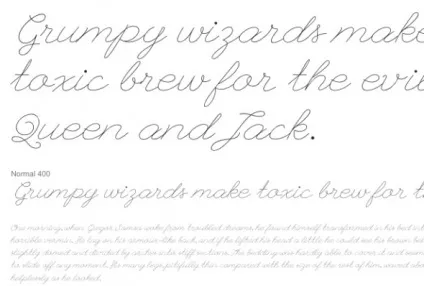 Grumpy wizards make
toxic brew for the evil
Queen and Jack.
Normal 400
Grumpy wizards make toxic brew for
One morning, when Gregor Samsa woke from troubled dreams, he found himself transformed in his bed
horrible vermin. He lay on his armour-like back, and if he lifted his head a little he could see his brown
slightly domed and divided by arches into stiff sections. The bedding was hardly able to cover it and
to slide off any moment. His many legs, pitifully thin compared with the size of the rest of him, waved
helplessly as he looked.